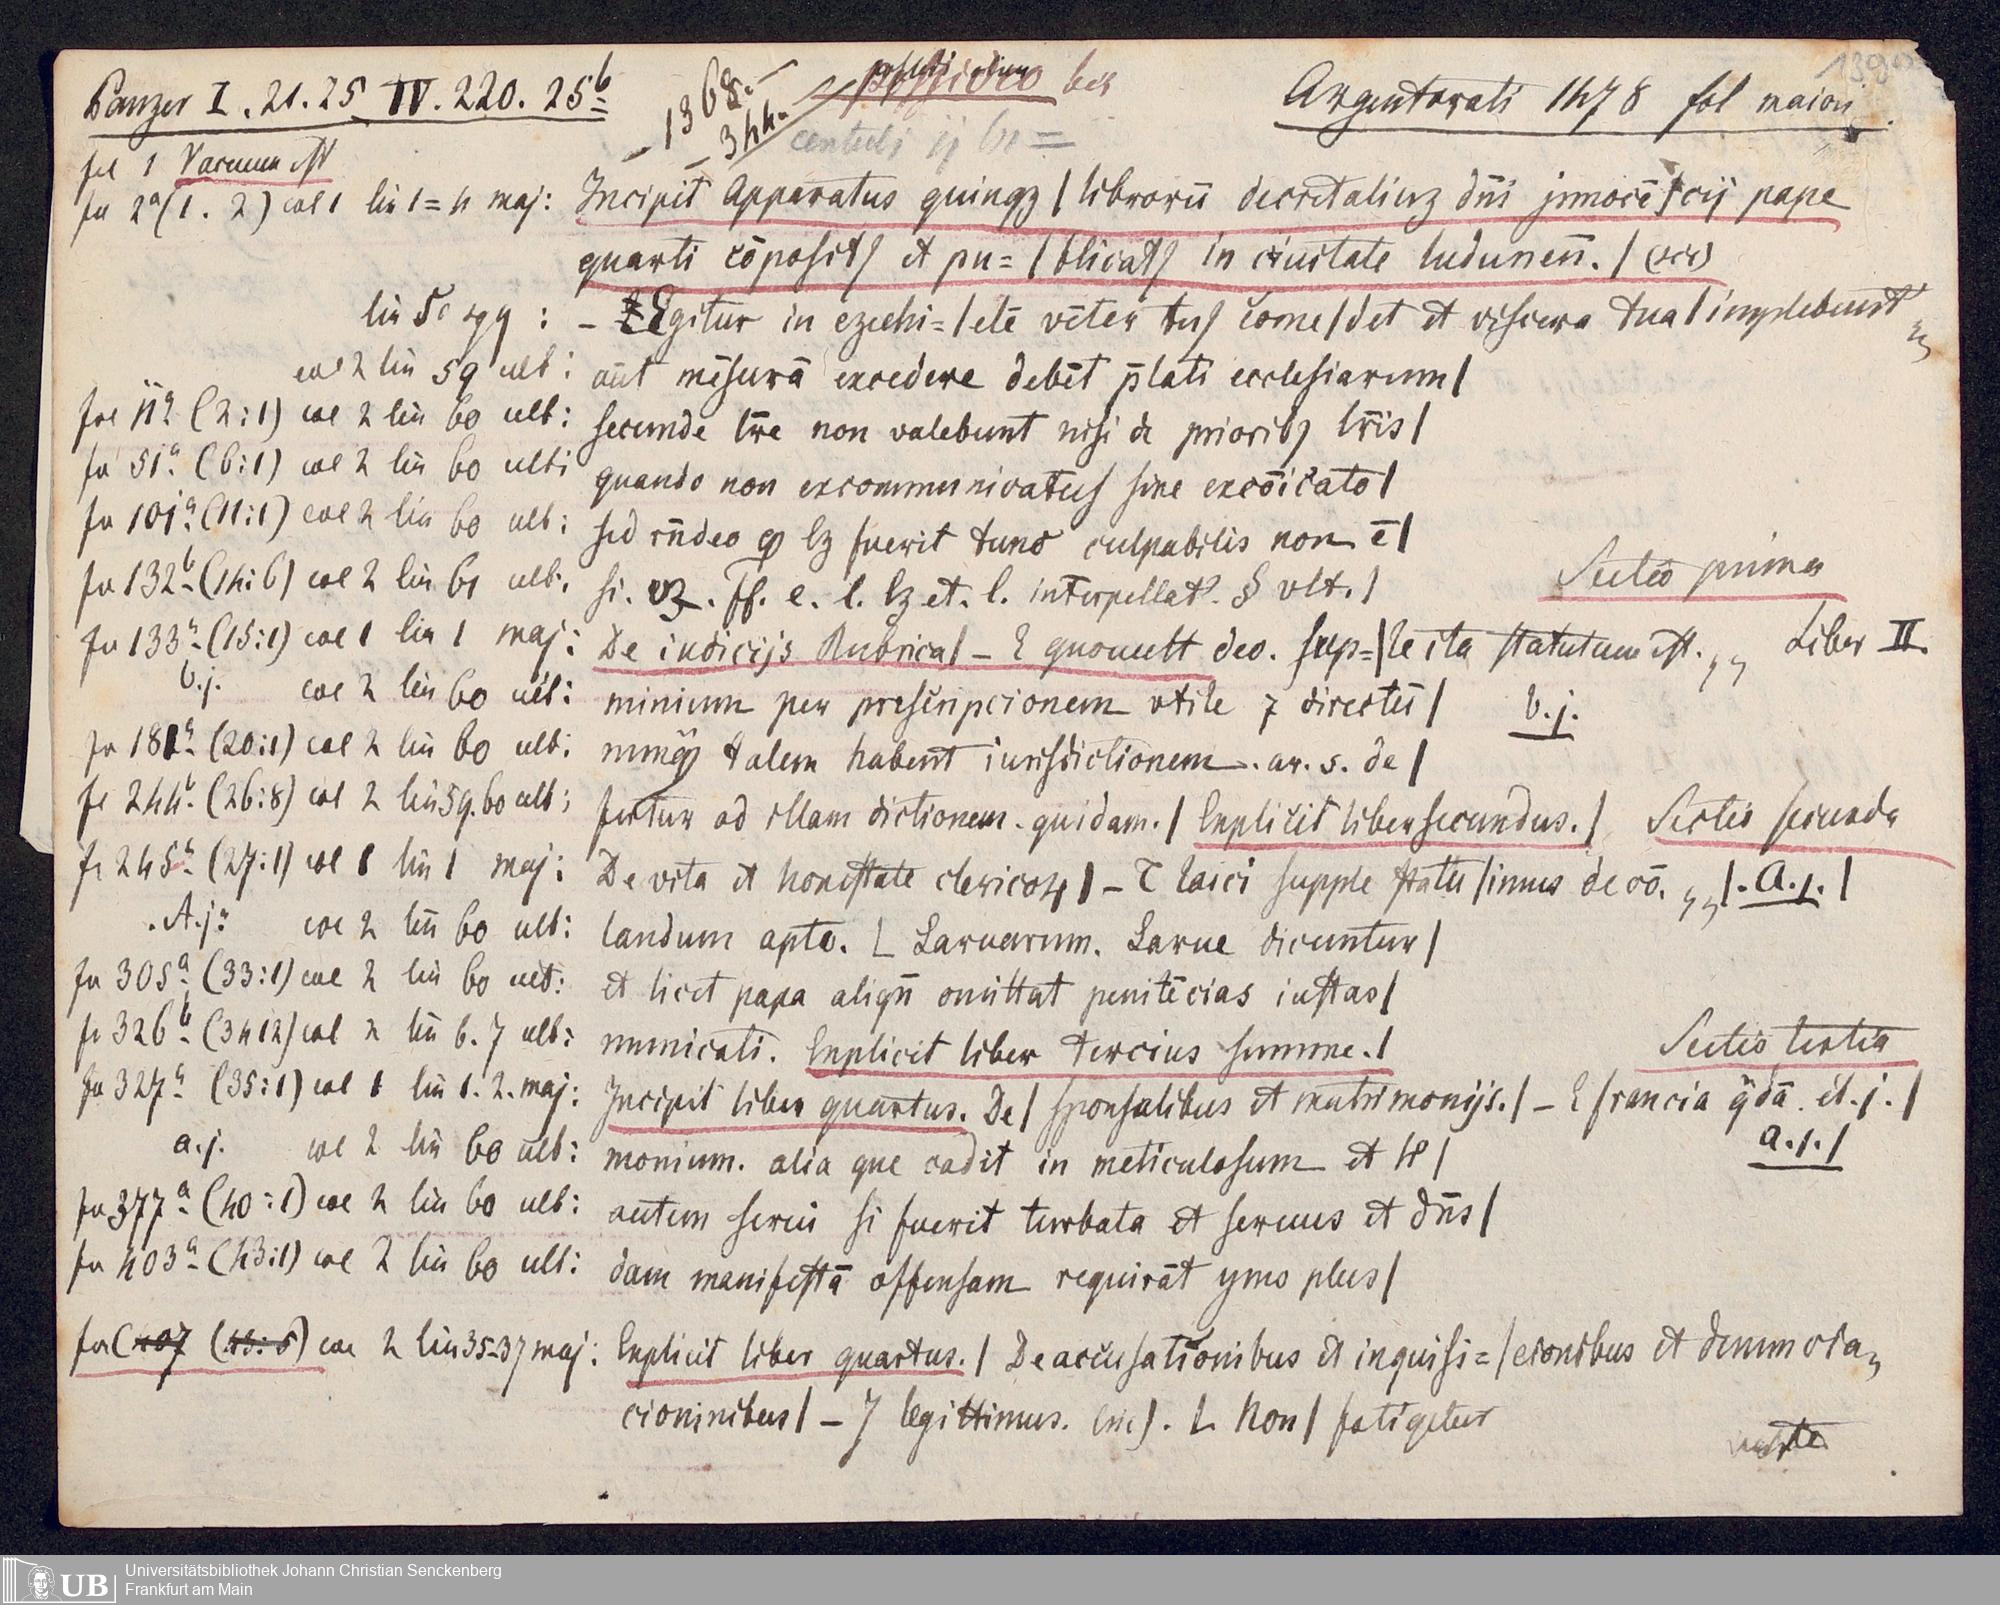 Panzer I. 21. 25 IV. 220. 25b
1368.
344.
possideo bis
centuli ij
Argentorati 1478 fol maiori
1390
fol 1 Vacuum est
fu 2a (1. 2) col 1 lin 1=4 maj: Incipit Apparatus quinqz / librorū decretaliuz dn̄i jnnocē/cij pape
quarti cōposit9 et pu= / blicat9 in ciuitate ludunen̄. /
lin 5 sqq: – Egitur in ezechi= / elē vēter tu9 come/det et viscera tua / implebunt
col 2 lin 59 ult: aūt mēsurā excedere debēt p̄lati ecclesiarum /
fol 11a (2:1) col 2 lin 60 ult: secunde lr̄e non valebunt nisi de priorib9 lr̄is /
fu 51a (6:1) col 2 lin 60 ult: quando non excommunicatus sine excōicato /
fu 101a (11:1) col 2 lin 60 ult: sed rn̄deo q lz fuerit tunc culpabilis non ē /
fu 132b (14:6) col 2 lin 61 ult: si. vz. ff. e. l. lz et. l. interpellat. § vlt. /
Sectio prima
fu 133a (15:1) col 1 lin 1 maj: De iudicijs Rubrica / – E quouult deo. sup= / le ita statutum est. „ Liber II.
b.j. col 2 lin 60 ult: minium per prescripcionem vtile 7 directū / b.j.
fu 181a (20:1) col 2 lin 60 ult: nunq talem habent iurisdictionem. ar. s. de /
fu 244b (26:8) col 2 lin 59. 60 ult: fertur ad illam dictionem. quidam. / Explicit liber secundus. / Sectio secunda
fu 245a (27:1) col 1 lin 1 maj: De vita et honestate clericoꝝ / – T laici supple statu / imus de cō. „ / .A.j. /
.A.j. col 2 lin 60 ult: landum apto. L Laruarum. Larue dicuntur /
fu 305a (33:1) col 2 lin 60 ult: et licet papa aliqn̄ omittat penitēcias iustas /
fu 326b (34:12) col 2 lin 6. 7 ult: municati. Explicit liber tercius summe. / Sectio tertia
fu 327a (35:1) col 1 lin 1. 2. maj: Incipit liber quartus. De / sponsalibus et matrimonijs. / – E francia q̄dā. et. j. /
a.j. col 2 lin 60 ult: monium. alia que cadit in meticulosum et / a.j. /
fu 377a (40:1) col 2 lin 60 ult: autem serui si fuerit turbata et seruus et dn̄s /
fu 403a (43:1) col 2 lin 60 ult: dam manifestā offensam requirāt ymo plus /
fu (407 (43:5) col 2 lin 35-37 maj: Explicit liber quartus. / De accusationibus et inquisi= / cionibus et denuncia„
cioninibus / – 7 legittimus. L Non / fatigetur
verte
Universitätsbibliothek Johann Christian Senckenberg
Frankfurt am Main
UB